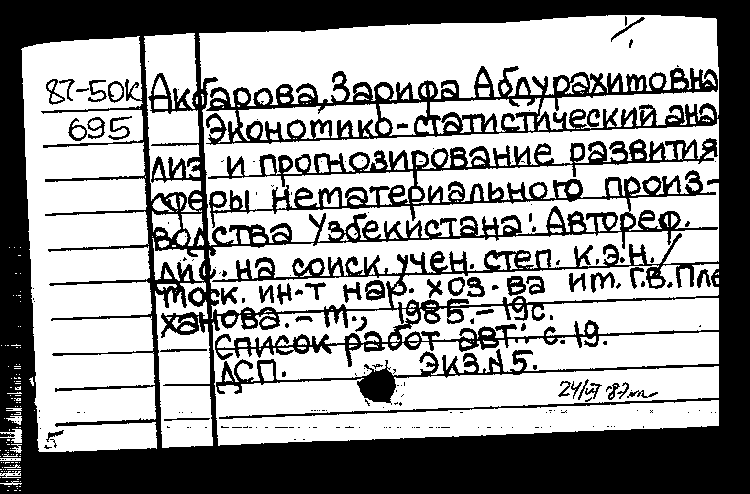 87-50к Акбарова, Зарифа Абдурахитовна
695 Экономико-статистический ана
лиз и прогнозирование развития
сферы нематериального произ-
водства Узбекистана: Автореф.
дис. на соиск. учен. степ. к.э.н. /
Моск. ин-т нар. хоз-ва им. Г.В. Пле
ханова. – М., 1985. – 19с.
Список работ авт.: с. 19.
ДСП. Экз. N 5.
24/VI 87
5